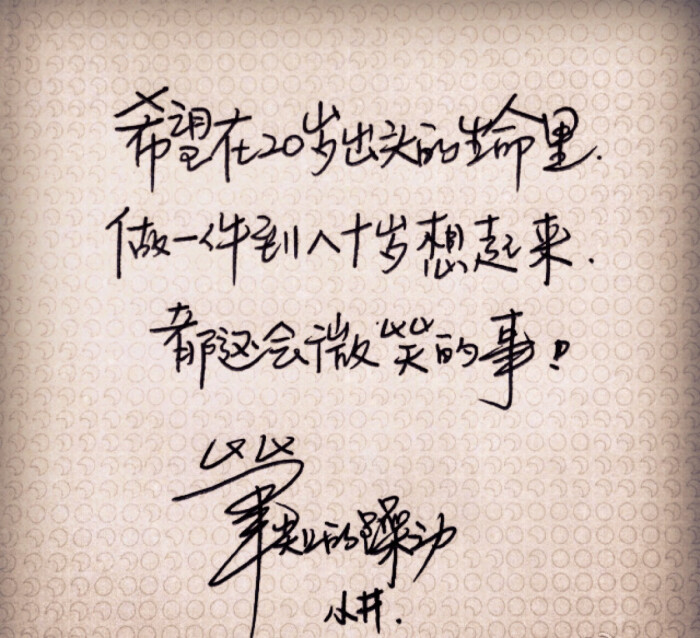 希望在20岁出头的生命里.
做一件到八十岁想起来.
都还会微笑的事!
的躁动
小井.